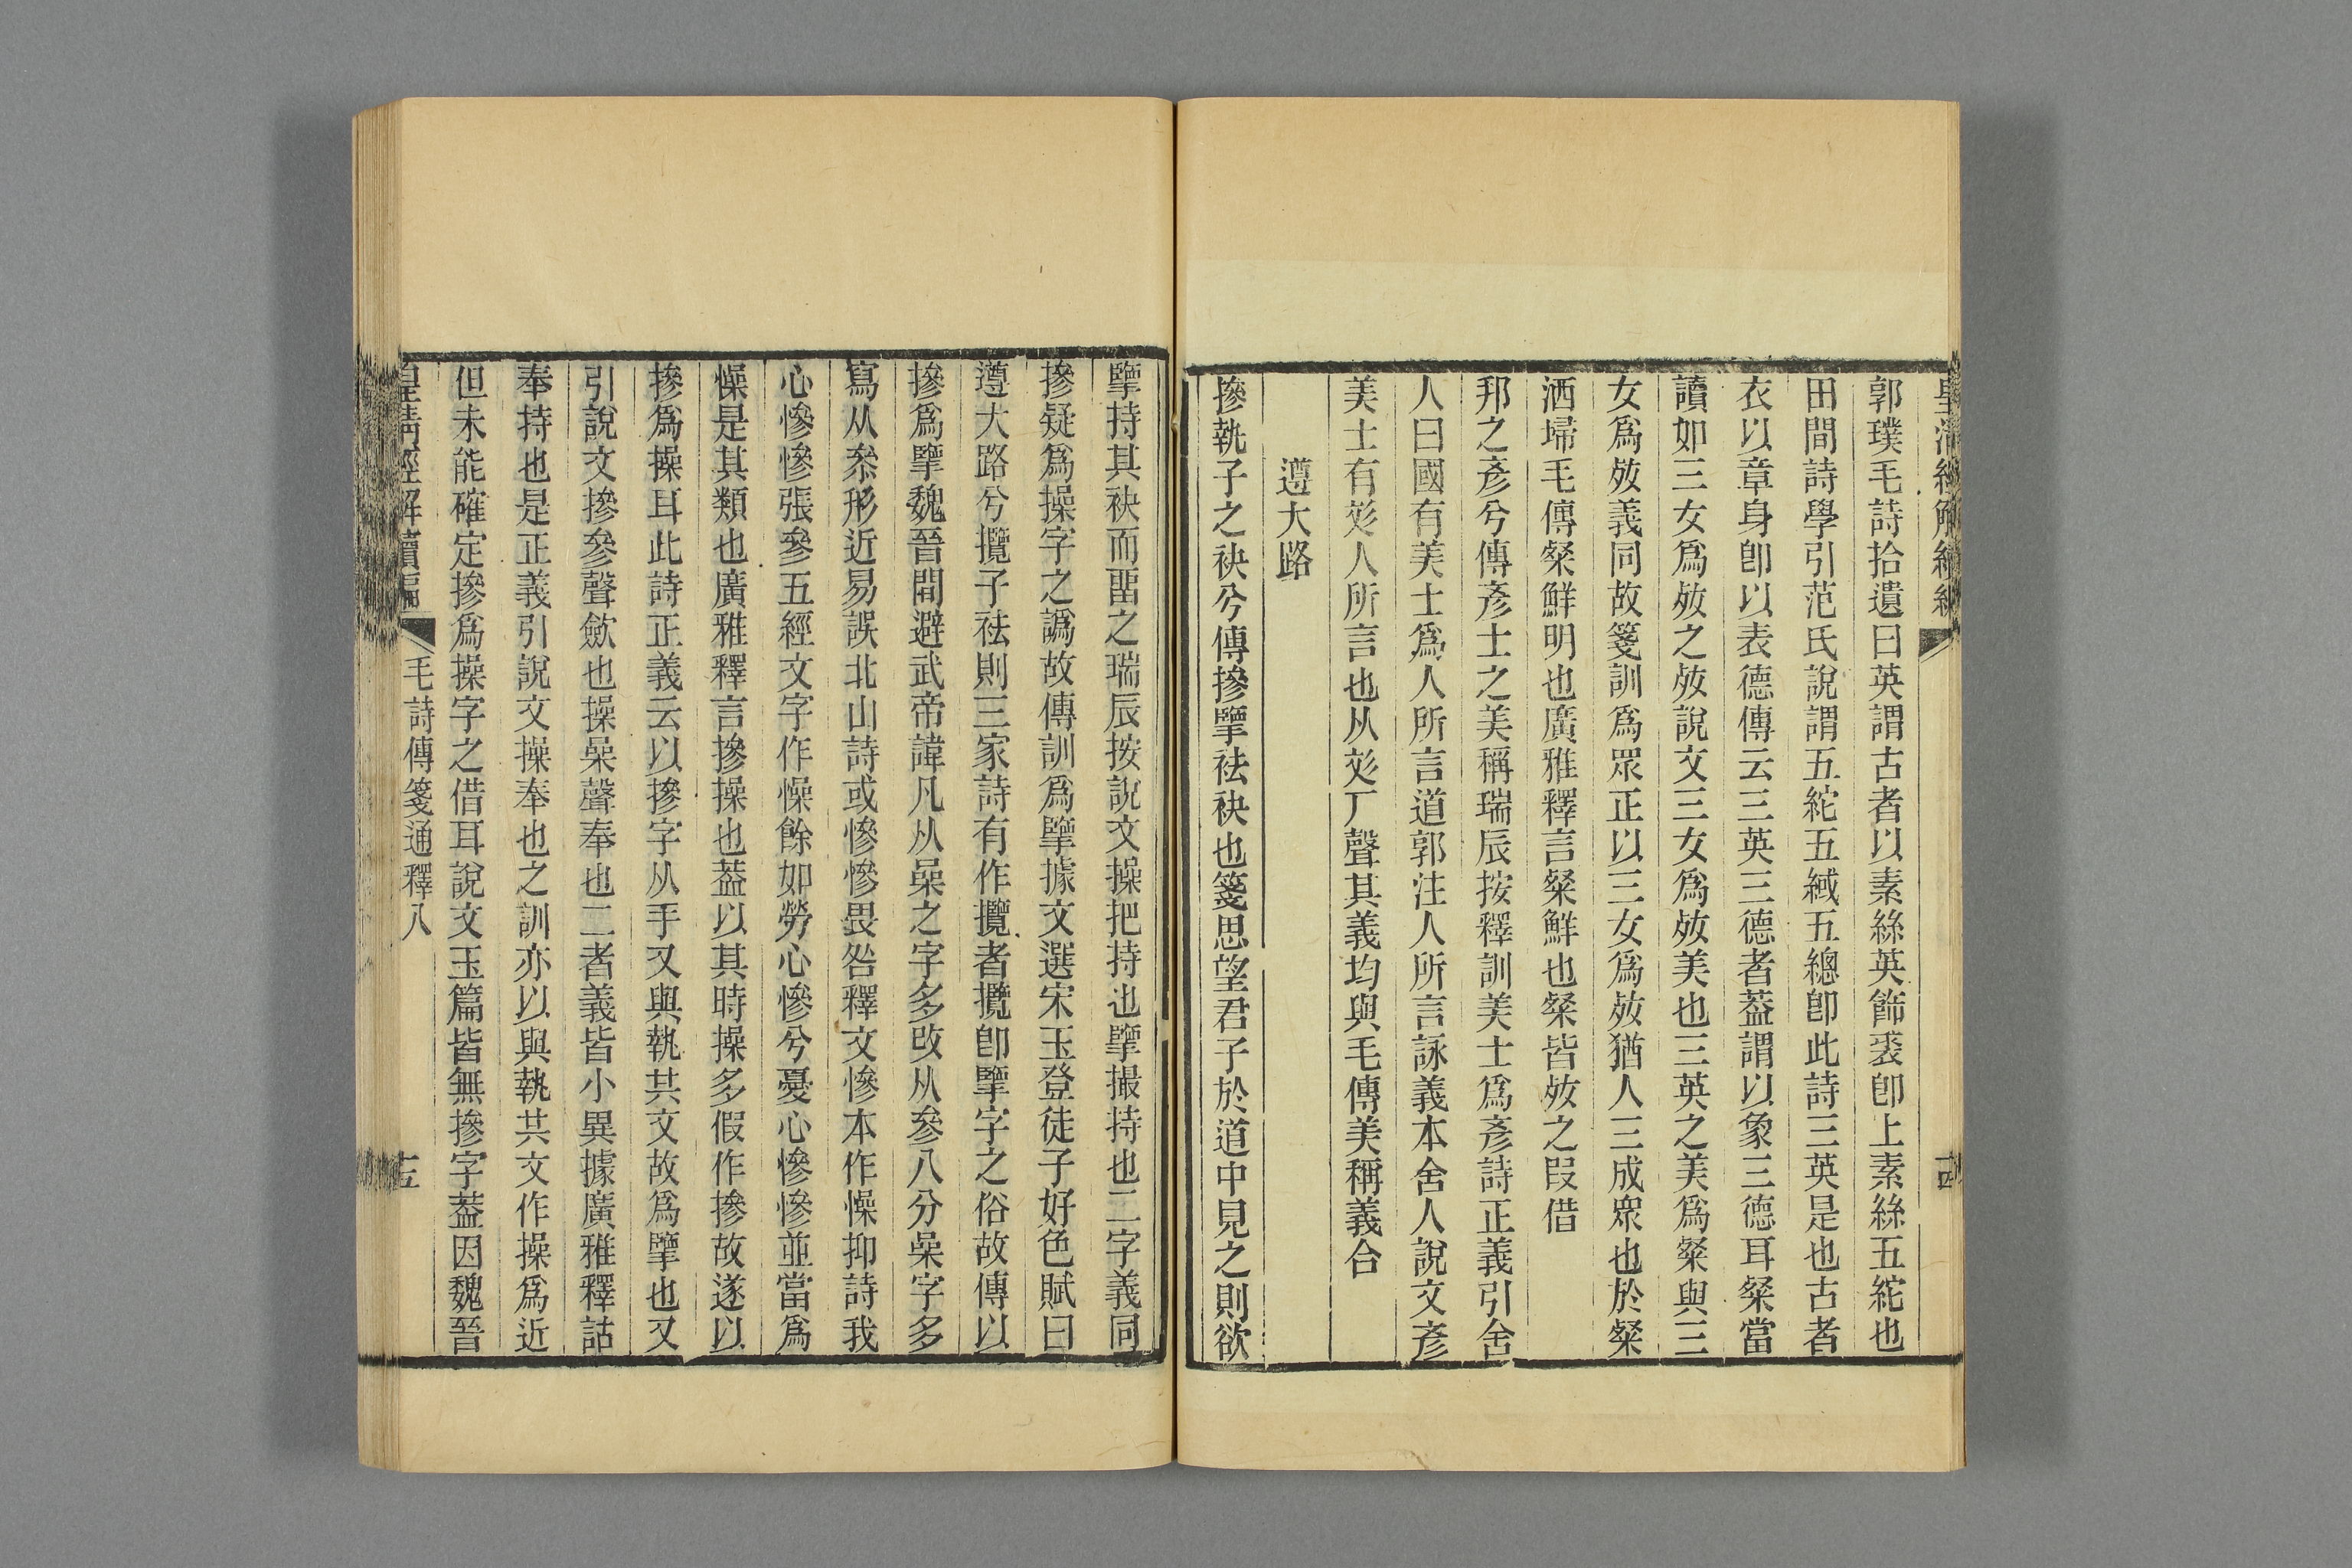 郭璞毛詩拾遺曰英謂古者以素絲英飾裘卽上素絲五紽也
田間詩學引范氏說謂五紽五緎五總卽此詩三英是也古者
衣以章身卽以表德傳云三英三德者葢謂以象三德耳粲當
讀如三女爲㛑之㛑說文三女爲㛑㛑美也三英之美爲粲與三
女爲㛑義同故箋訓爲眾正以三女爲㛑猶人三成衆也於粲
洒埽毛傳粲鮮明也廣雅釋言粲鮮也粲皆㛑之叚借
邦之彥兮傳彥士之美稱瑞辰按釋訓美士爲彥詩正義引舍
人曰國有美士爲人所言道郭注人所言詠義本舍人說文彥
美士有彣人所言也从彣厂聲其義均與毛傳美稱義合
遵大路
摻執子之袂兮傳摻擥袪袂也箋思望君子於道中見之則欲
擥持其袂而畱之瑞辰按說文操把持也擥撮持也二字義同
摻疑爲操字之譌故傳訓爲擥據文選宋玉登徒子好色賦曰
遵大路兮攬子袪則三家詩有作攬者攬卽擥字之俗故傳以
摻爲擥魏晉間避武帝諱凡从喿之字多改从參八分喿字多
寫从叅形近易誤北山詩或慘慘畏咎釋文慘本作懆抑詩我
心慘慘張參五經文字作懆餘如勞心慘兮憂心慘慘並當爲
懆是其類也廣雅釋言摻操也葢以其時操多假作摻故遂以
摻爲操耳此詩正義云以摻字从手又與執其文故爲擥也又
引說文摻參聲歛也操喿聲奉也二者義皆小異據廣雅釋詁
奉持也是正義引說文操奉也之訓亦以與執共文作操爲近
但未能確定摻爲操字之借耳說文玉篇皆無摻字葢因魏晉
皇清經解續編
毛詩傳箋通釋八
十五